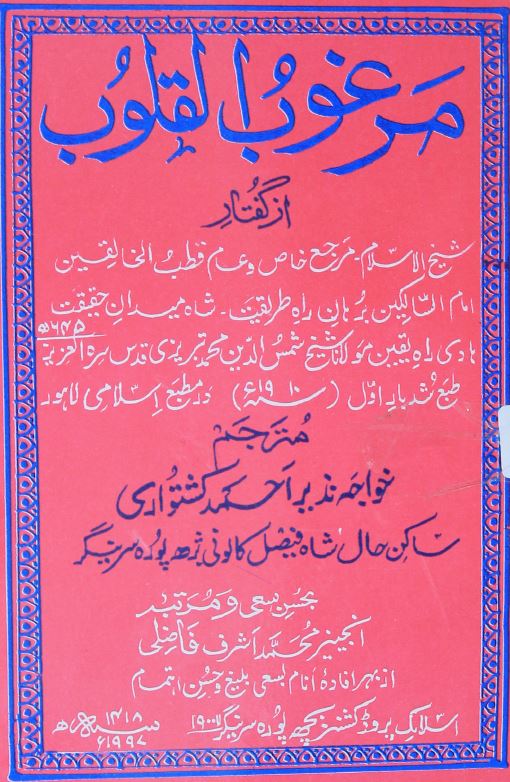 مرغوبُ القلوب
از گفتارِ
شیخ الاسلام۔ مرجع خاص و عام قطبُ الخالقین
امام السالکین برُہانِ راہِ طریقت۔ شاہ میدانِ حقیقت
ہادی راہِ یقین مولانا شیخ شمسُ الدین محمد تبریزی قدس سرہ العزیز ۶۴۵ھ
طبع شد بارِ اوّل (سنہ ۱۹۱۰ء) در مطبع اسلامی لاہور
مُترجم
خواجہ نذیر احمد کشتواری
ساکن حال شاہ فیصل کالونی ژھ پورہ سرینگر
بحسُنِ سعی و مرتبہ
انجینیر محمّد اشرف فاضلی
از بہر افادۂ انام بسعی بلیغ و حُسنِ اہتمام
اسلامک پروڈکشنز بچھ پورہ سرینگر ۱۹۰۰۱۱ ۱۴۱۸ھ ۱۹۹۷ء